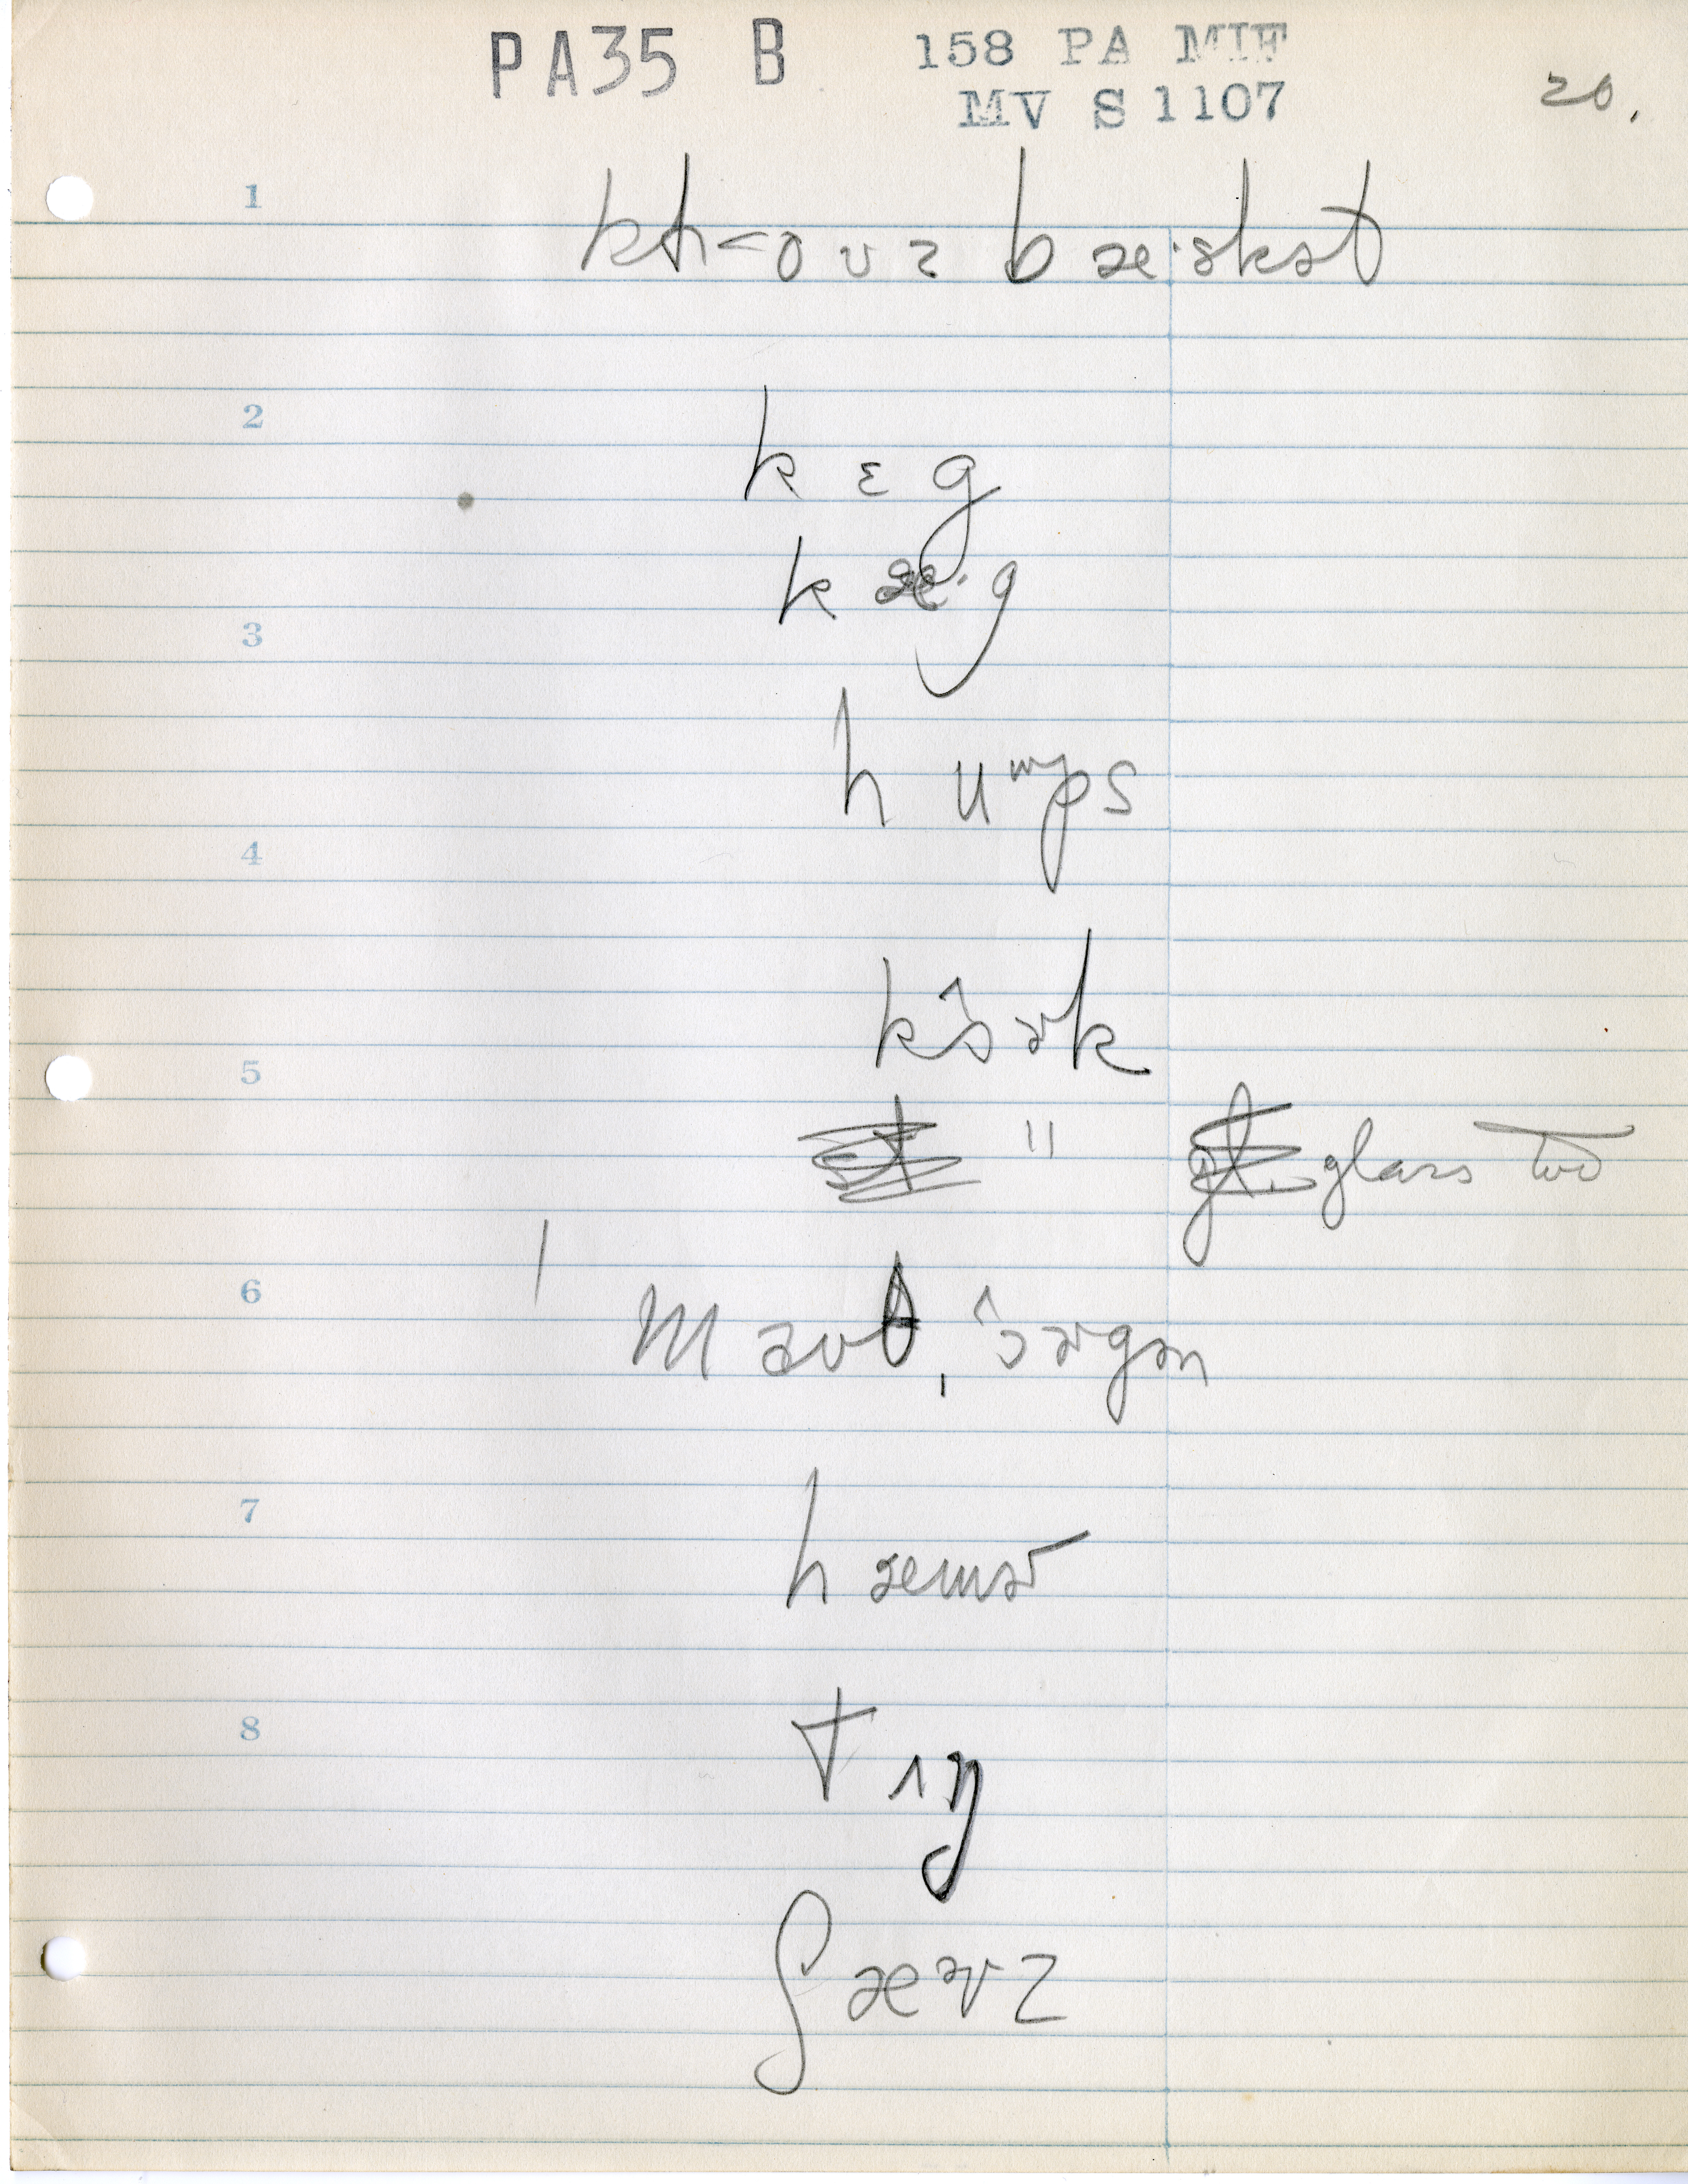 PA35 B 158 PA MIF
MV S 1107
20.
1
kl<oʊz bæ·skət
2
kɛg
kæ·g
3
huᵐps
4
kɔ̂ɚk
5
" glass too
6
| maʊθ, ɔ̂ɚgən
7
hæmɚ
8
tʌŋ
ʃæɚz